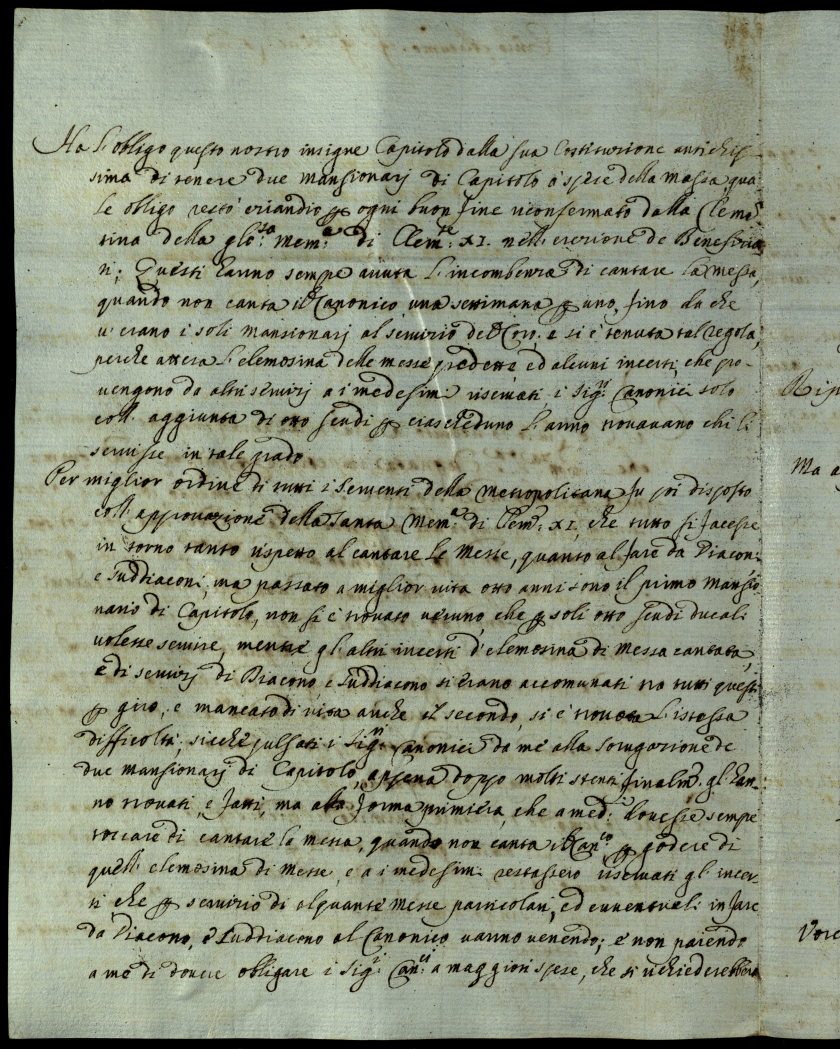 Ha l'obligo questo nostro insigne Capitolo dalla sua Costituzione antichis-
sima di tenere due Mansionarj di Capitolo a spese della massa, qua-
le obligo restò eziandio p ogni buon fine riconfermato dalla Cleme
tina della glo:sa mem:a di Clem:te XI. nell'erezione de Beneficia-
ti; Questi hanno sempre avuta l'incombenza di cantare la messa,
quando non canta il Canonico una settimana p uno, fino da che
v'erano i soli mansionarj al servizio del Coro. e si è tenuta tal regola,
perche attesa l'elemosina delle messe predette ed alcuni incerti, che pro-
vengono da altri servizj a i medesimi riservati i Sig:ri Canonici solo
coll' aggiunta di otto scudi p ciascheduno l'anno trovavano chi li
servisse in tale grado
Per miglior ordine di tutti i Serventi della Metropolitana fu poi disposto
coll'approvazione della Santa Mem:a di Clem: XI, che tutto si facesse
in torno tanto rispetto al cantare le Messe, quanto al fare da Diaconi
e Suddiaconi, ma passato a miglior vita otto anni sono il primo Mansio-
nario di Capitolo, non si è trovato veruno, che p soli otto scudi ducali
volesse servire, mentre gl'altri incerti d'elemosina di Messa cantata,
e di servizj di Diacono e Suddiacono si erano accomunati tra tutti questi
p giro, e mancato di vita anche il secondo, si è trovata l'istessa
difficoltà, sicche pulsati i Sig:ri Canonici da me alla surrogazione de
due mansionarj di Capitolo, appena doppo molti stenti finalm:e gl'han-
no trovati, e fatti, ma alla forma primiera, che a med:i dovesse sempre
toccare di cantare la messa, quando non canta il Can:co p godere di
quell' elemosina di Messe, e a i medesimi restassero riservati gl'incer-
ti che p servizio di alquante Messe particolari, ed eventuali in fare
da Diacono, e Suddiacono al Canonico vanno venendo; e non parendo
a me di dovere obligare i Sig:i Can:ci a maggiori spese, che si richiederebbero
Rip
Ma a
Vore